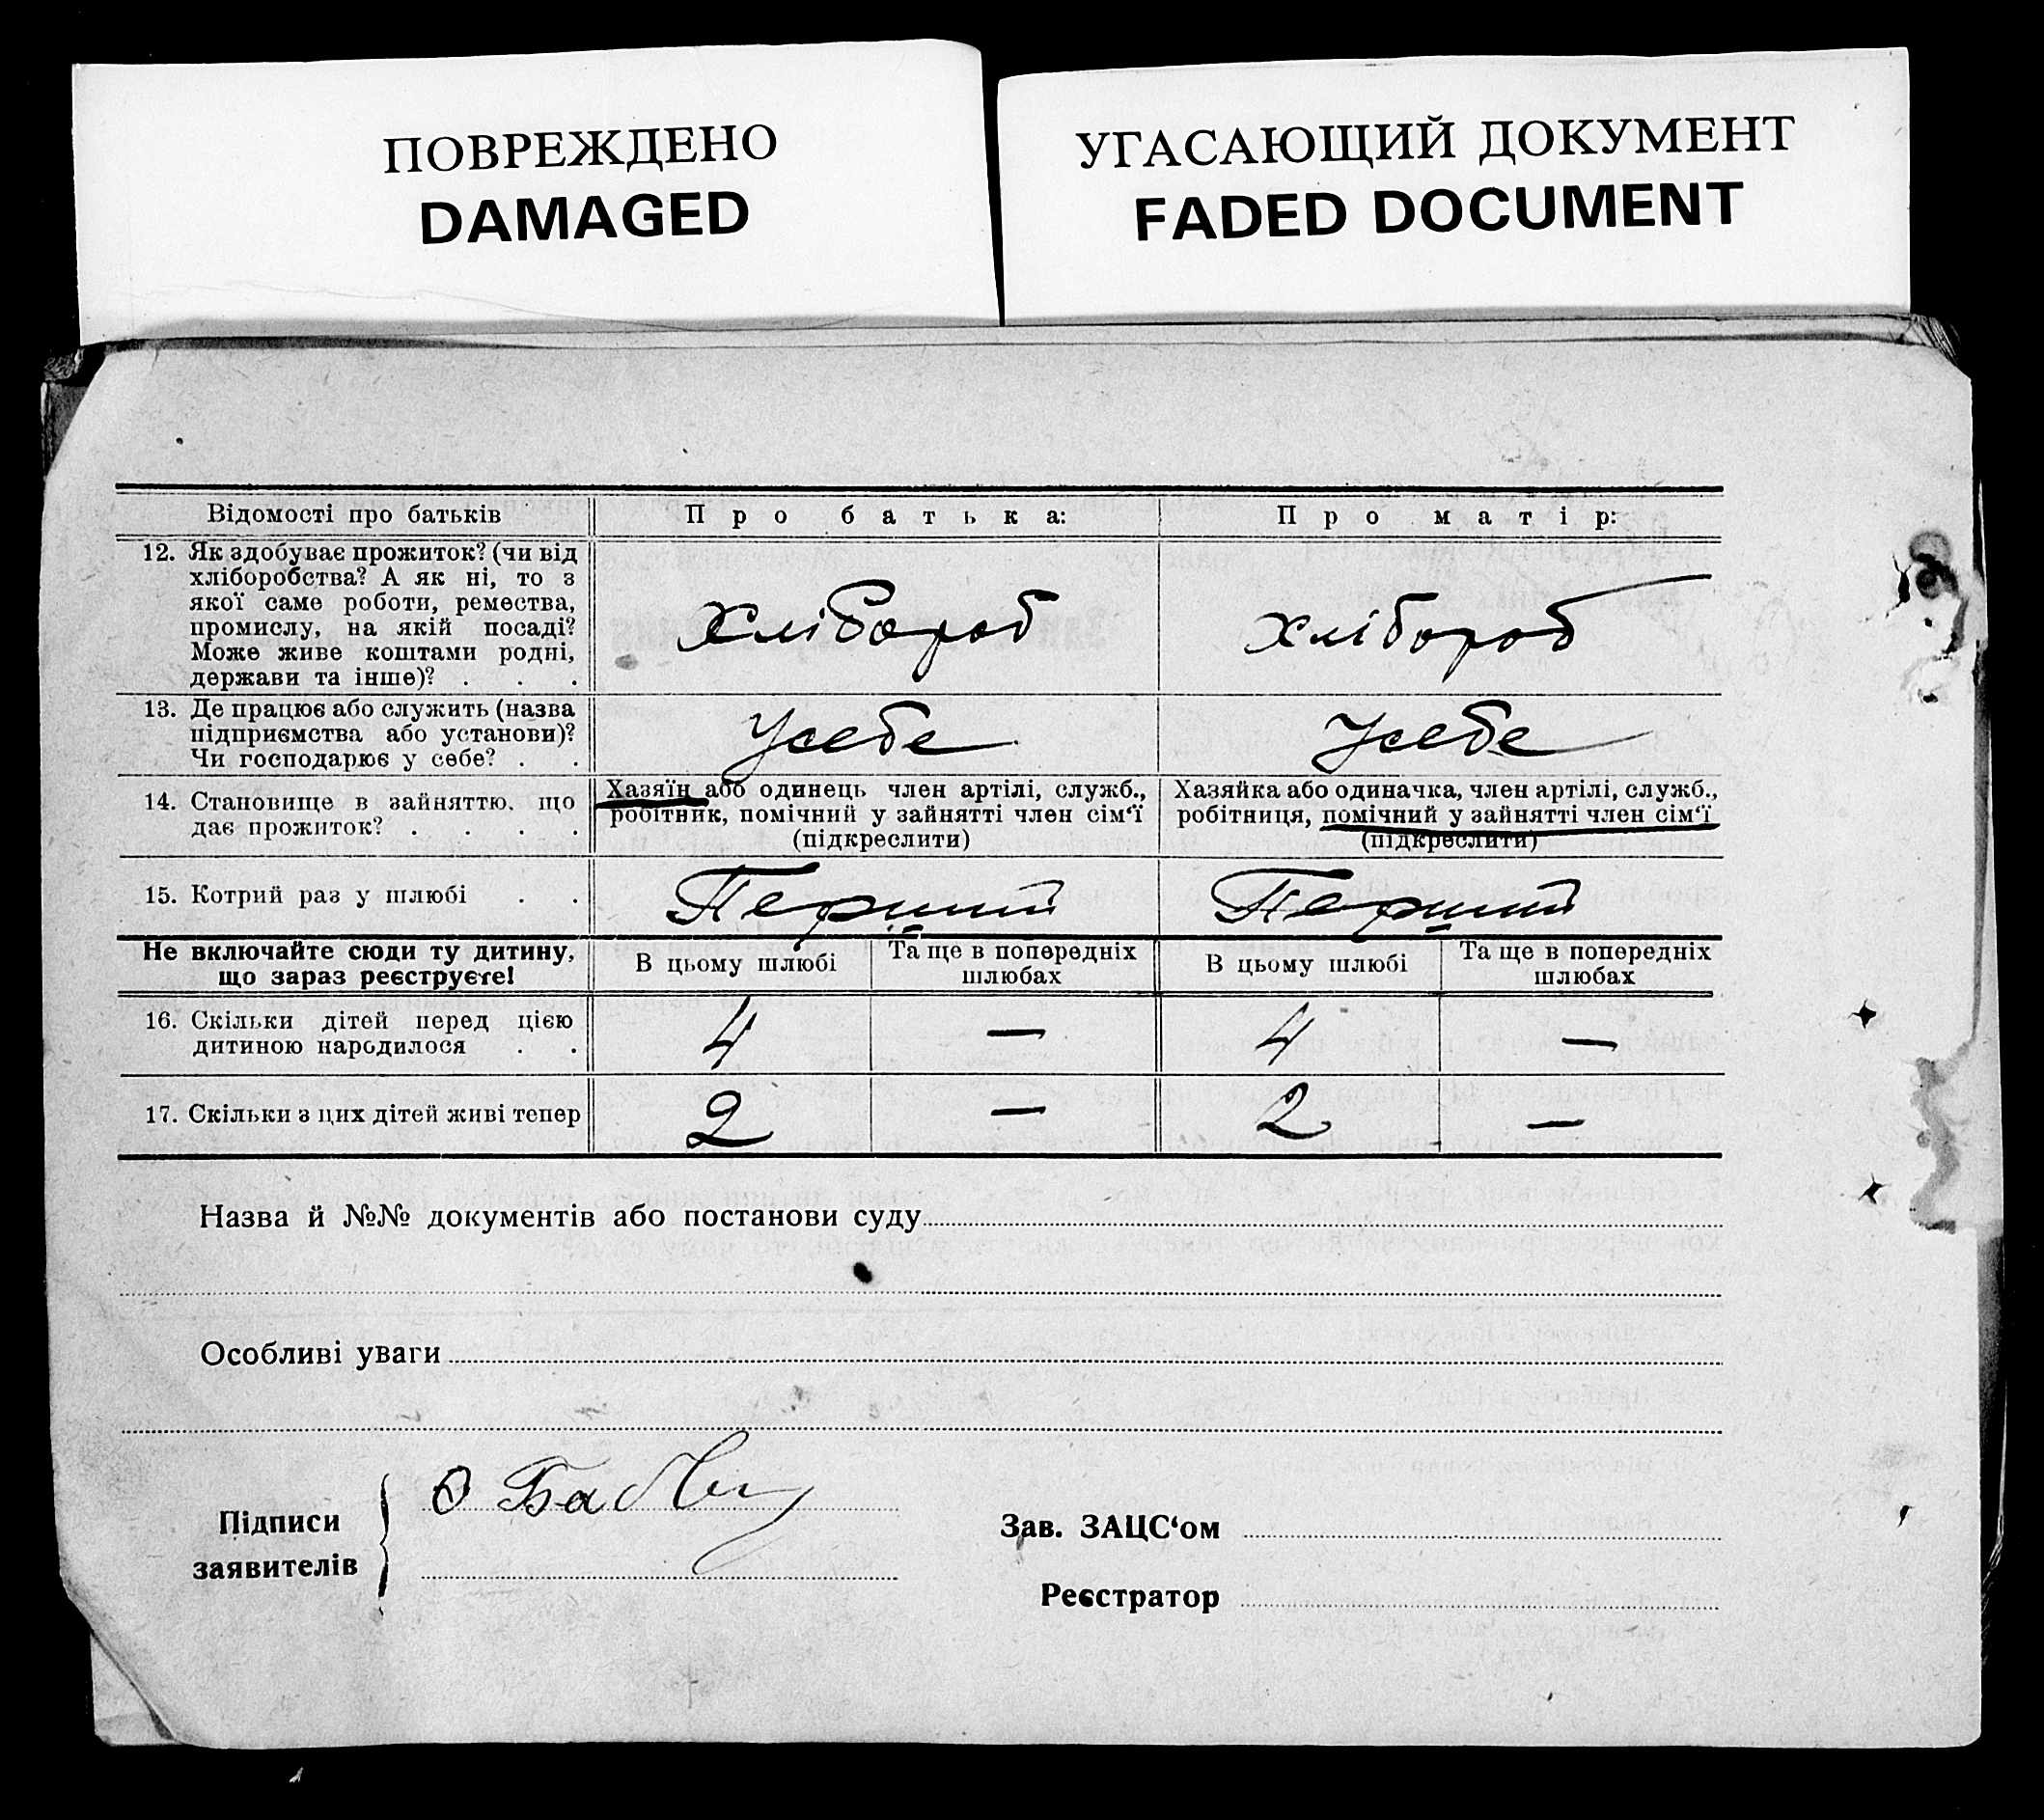 ПОВРЕЖДЕНО
DAMAGED
УГАСАЮЩИЙ ДОКУМЕНТ
FADED DOCUMENT
Відомості про батьків
Про батька:
Про матір:
12. Як здобуває прожиток? (чи від
хліборобства? А як ні, то з
якої саме роботи, ремества,
промислу, на якій посаді?
Може живе коштами родні,
держави та інше)? . . .
Хлібороб
Хлібороб
13. Де працює або служить (назва
підприємства або установи)?
Чи господарює у себе? . .
Усебе
Усебе
14. Становище в зайняттю, що
дає прожиток? . . . .
Хазяїн або одинець член артілі, служб.,
робітник, помічний у зайнятті член сім‘ї
(підкреслити)
Хазяйка або одиначка, член артілі, служб.,
робітниця, помічний у зайнятті член сім‘ї
(підкреслити)
15. Котрий раз у шлюбі . .
Перший
Перший
Не включайте сюди ту дитину,
що зараз реєструєте!
В цьому шлюбі
Та ще в попередніх
шлюбах
В цьому шлюбі
Та ще в попередніх
шлюбах
16. Скільки дітей перед цією
дитиною народилося . .
4
—
4
—
17. Скільки з цих дітей живі тепер
2
—
2
—
Назва й №№ документів або постанови суду
Особливі уваги
Підписи
заявителів
Зав. ЗАЦС‘ом
Реєстратор